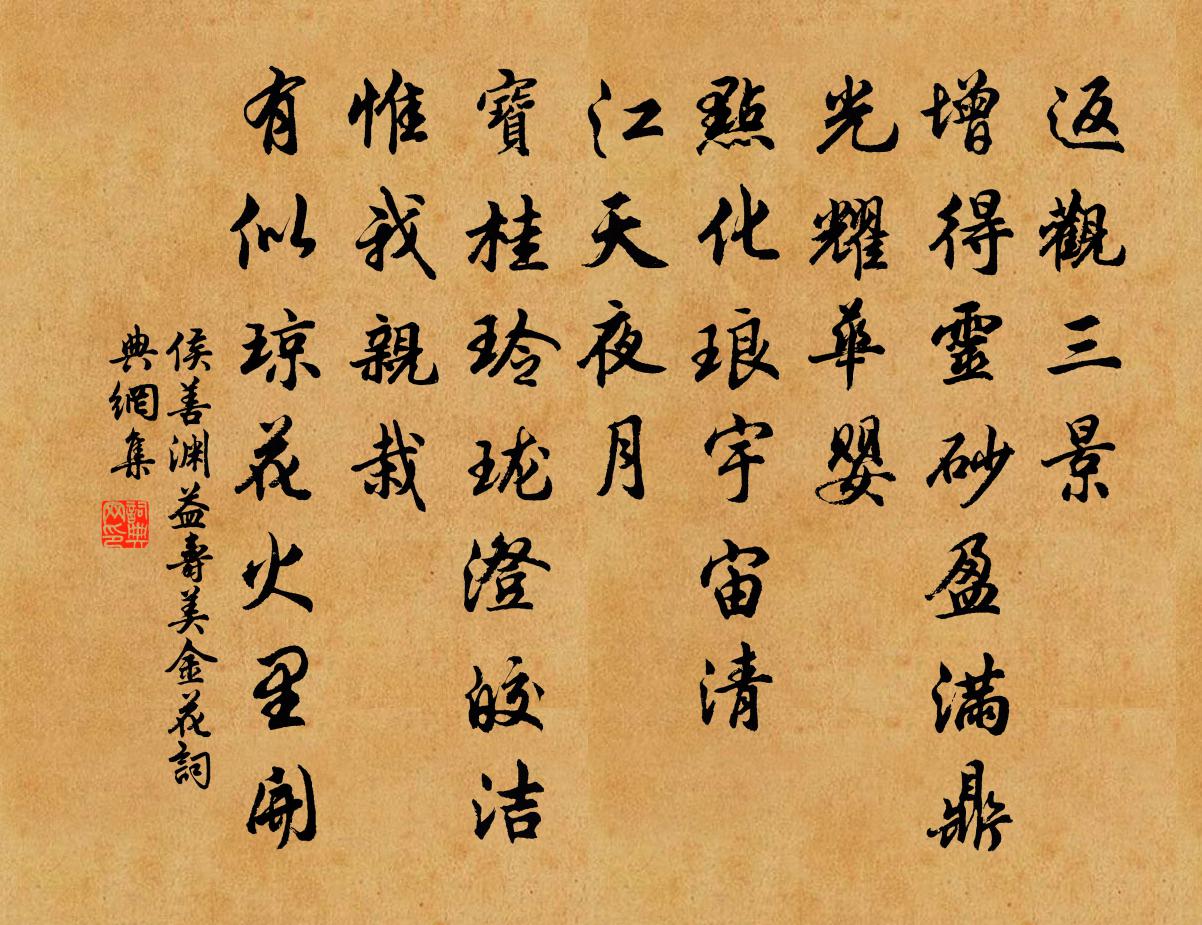 返觀三景
增得靈砂盈滿鼎
光耀華嬰
點化琅宇宙清
江天夜月
寶桂玲珑澄皎洁
惟我親栽
有似琼花火里開
侯善渊益壽美金花詞
典網集
詞典网印